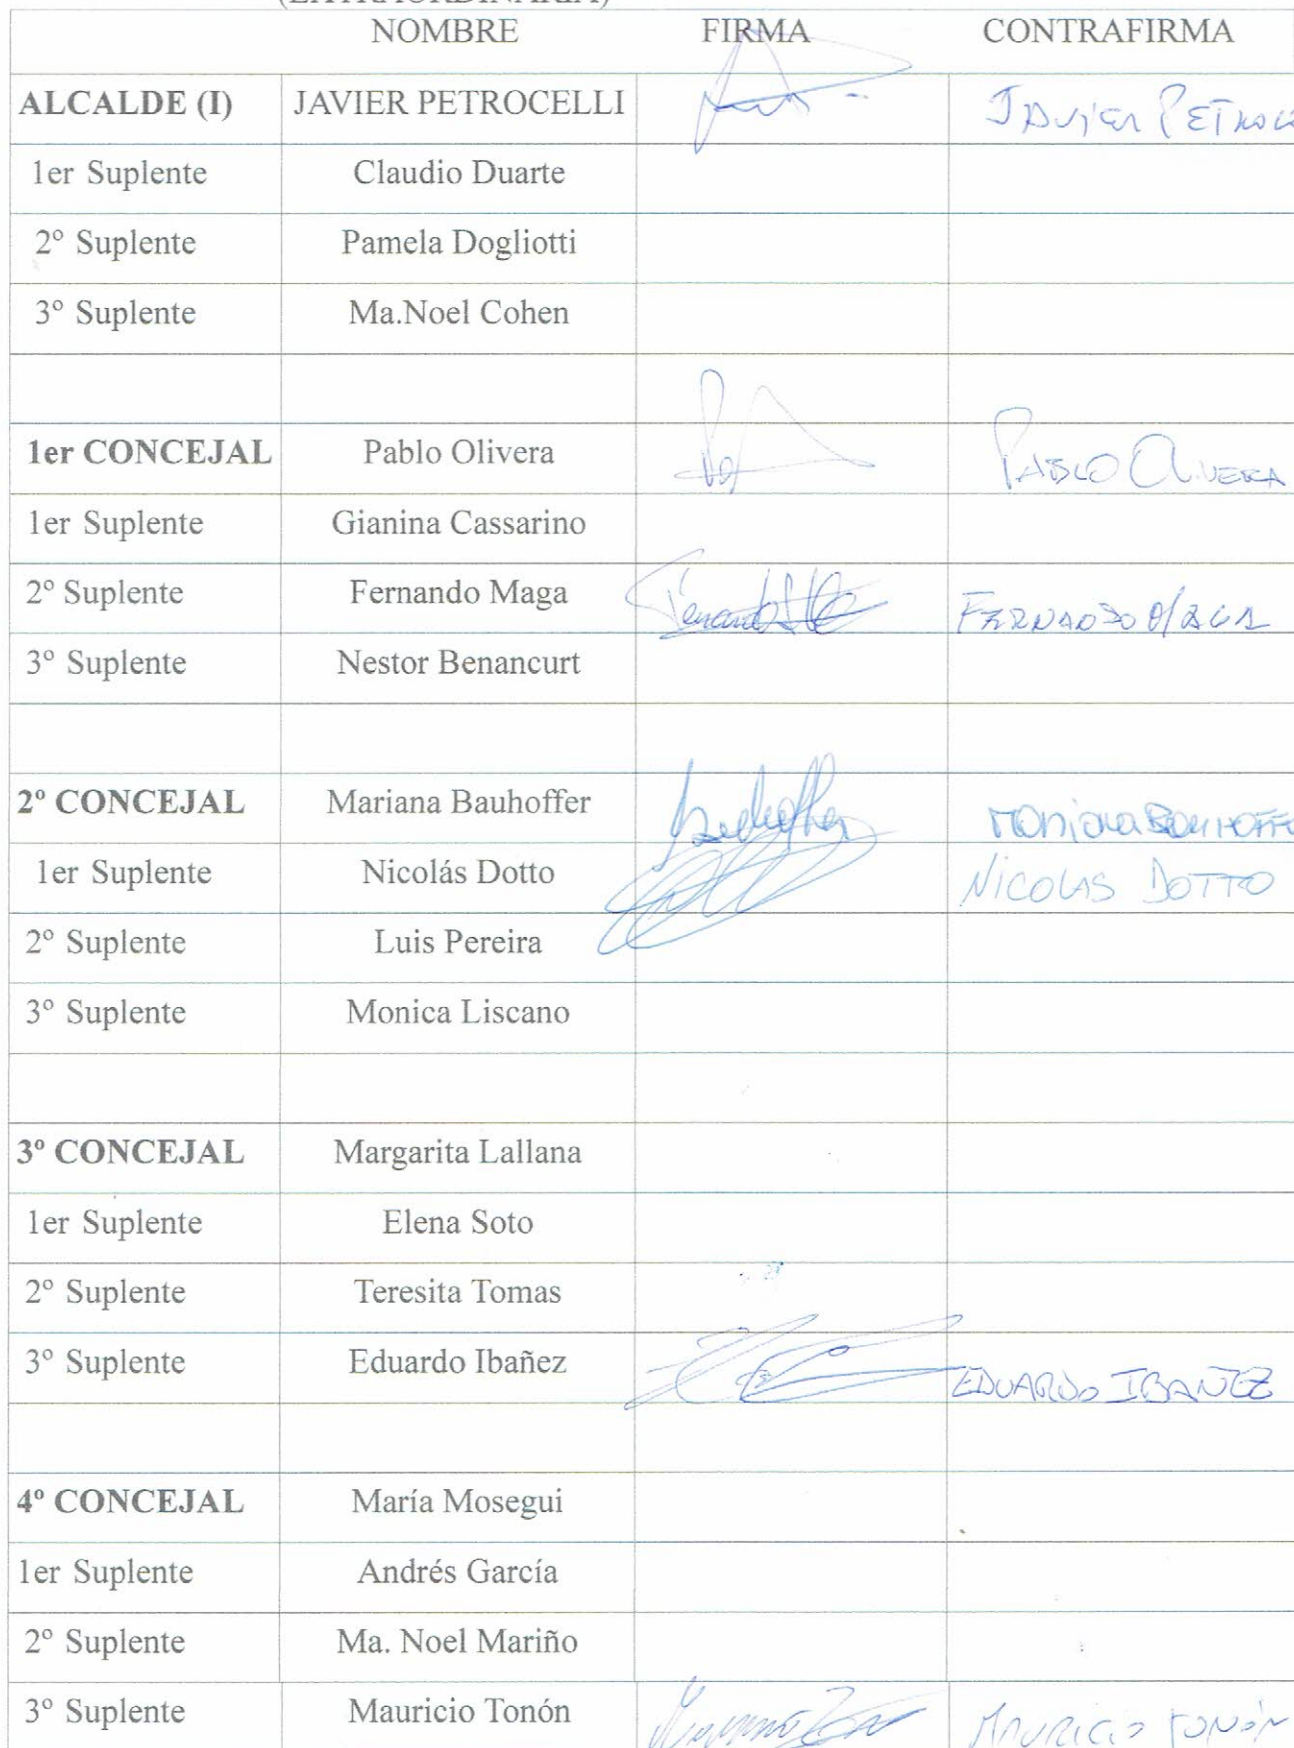 (EXTRAORDINARIA)
NOMBRE FIRMA CONTRAFIRMA
ALCALDE (I) JAVIER PETROCELLI JAVIER PETROCE
1er Suplente Claudio Duarte
2º Suplente Pamela Dogliotti
3º Suplente Ma.Noel Cohen
1er CONCEJAL Pablo Olivera PABLO OLIVERA
1er Suplente Gianina Cassarino
2º Suplente Fernando Maga FERNANDO MAGA
3º Suplente Nestor Benancurt
2º CONCEJAL Mariana Bauhoffer Mariana BAUHOFFE
1er Suplente Nicolás Dotto NICOLAS DOTTO
2º Suplente Luis Pereira
3º Suplente Monica Liscano
3º CONCEJAL Margarita Lallana
1er Suplente Elena Soto
2º Suplente Teresita Tomas
3º Suplente Eduardo Ibañez EDUARDO IBAÑEZ
4º CONCEJAL María Mosegui
1er Suplente Andrés García
2º Suplente Ma. Noel Mariño
3º Suplente Mauricio Tonón MAURICIO TONÓN